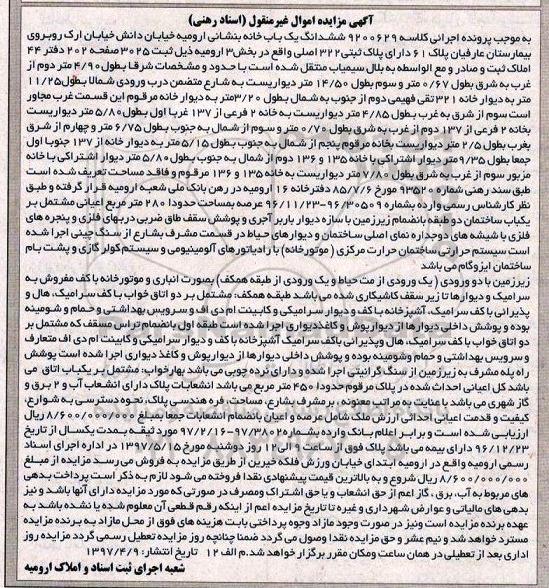 آگهی مزایده اموال غیرمنقول (اسناد رهنی)
به موجب پرونده اجرائی کلاسه ۹۲۰۰۶۲۹ ششدانگ یک باب خانه بنشانی ارومیه خیابان دانش خیابان ارک روبروی
بیمارستان عارفیان پلاک ۶۱ دارای پلاک ثبتی ۳۲۲ اصلی واقع در بخش ۳ ارومیه ذیل ثبت ۳۰۲۵ صفحه ۲۰۲ دفتر ۴۴
املاک ثبت و صادر و مع الواسطه به بلال سیمیاب منتقل شده است با حدود و مشخصات شرقا بطول ۴/۹۰ متر دوم از
غرب به شرق بطول ۰/۶۷ متر و سوم بطول ۱۴/۵۰ متر دیواریست به شارع متضمن درب ورودی شمالا بطول ۱۱/۲۵
متر به دیوار خانه ۳۲۱ تقی فهیمی دوم از جنوب به شمال بطول ۳/۲۰ متر به دیوار خانه مرقوم این قسمت غرب مجاور
است سوم از شرق به غرب بطول ۴/۸۵ متر دیواریست به خانه ۲ فرعی از ۱۳۷ غربا اول بطول ۵/۸۰ متر دیواریست
بخانه ۲ فرعی از ۱۳۷ دوم از غرب به شرق بطول ۰/۷۰ متر و سوم از شمال به جنوب بطول ۶/۷۵ متر و چهارم از شرق
بغرب بطول ۲/۵ متر دیواریست بخانه مرقوم پنجم از شمال به جنوب بطول ۵/۱۵ متر به دیوار خانه از ۱۳۷ جنوبا اول
جمعا بطول ۹/۳۵ متر دیوار اشتراکی با خانه ۱۳۵ و ۱۳۶ دوم از شمال به جنوب بطول ۵/۸۰ متر دیوار اشتراکی با خانه
مزبور سوم از غرب به شرق بطول ۷/۸۰ متر دیواریست به خانه ۱۳۵ و ۱۳۶ مرقوم و فاقد مساحت تعریف شده است
طبق سند رهنی شماره ۹۳۵۲۰ مورخ ۸۵/۷/۶ دفترخانه ۱۶ ارومیه در رهن بانک ملی شعبه ارومیه قرار گرفته و طبق
نظر کارشناس رسمی وارده بشماره ۹۶۰۳۰۵۰۹-۹۶/۱۱/۲۳ عرصه بمساحت حدودا ۲۸۰ متر مربع اعیانی مشتمل بر
یکباب ساختمان دو طبقه بانضمام زیرزمین با سازه دیوار باربر آجری و پوشش سقف طاق ضربی دربهای فلزی و پنجره های
فلزی با شیشه های دوجداره نمای اصلی ساختمان و دیوارهای حیاط در قسمت مشرف بشارع از سنگ چینی اجرا شده
است سیستم حرارتی ساختمان حرارت مرکزی (موتورخانه) با رادیاتورهای آلومینیومی و سیستم کولر گازی و پشت بام
ساختمان ایزوگام می باشد
زیرزمین با دو ورودی (یک ورودی از مت حیاط و یک ورودی از طبقه همکف) بصورت انباری و موتورخانه با کف مفروش به
سرامیک و دیوارها تا زیر سقف کاشیکاری شده می باشد طبقه همکف: مشتمل بر دو اتاق خواب با کف سرامیک، هال و
پذیرائی با کف سرامیک، آشپزخانه با کف و دیوار سرامیکی و کابینت ام دی اف و سرویس بهداشتی و حمام و شومینه
بوده و پوشش داخلی دیوارها از دیوارپوش و کاغذ دیواری اجرا شده است طبقه اول بانضمام تراس مسقف که مشتمل بر
دو اتاق خواب با کف سرامیک، هال و پذیرائی باکف سرامیک آشپزخانه با کف و دیوار سرامیکی و کابینت ام دی اف متعارف
و سرویس بهداشتی و حمام و شومینه بوده و پوشش داخلی دیوارها از دیوارپوش و کاغذ دیواری اجرا شده است پوشش
راه پله مشرف به زیرزمین از سنگ گرانیتی اجرا شده و دارای نرده چوبی می باشد بهارخواب: مشتمل بر یکباب اتاق می
باشد کل اعیانی احداث شده در پلاک مرقوم حدودا ۴۵۰ متر مربع می باشد انشعابات پلاک دارای انشعاب آب و ۲ برق و
گاز شهری می باشد با عنایت به مراتب معنونه، بر مشرف بشارع، مساحت، فره هندسی پلاک، نحوه دسترسی به شوارع،
کیفیت و قدمت اعیانی احداثی ارزش ملک شامل عرصه و اعیان بانضمام انشعابات جمعا بمبلغ ۸/۶۰۰/۰۰۰/۰۰۰ ریال
ارزیابی شده است و برابر اعلام بانک وارده بشماره ۹۷/۳۸۰۲-۹۷/۲/۱۶ مورد ثیقه بمدت یکسال از تاریخ
۹۶/۱۲/۲۳ دارای بیمه می باشد پلاک فوق از ساعت ۹ الی ۱۲ روز دوشنبه مورخ ۱۳۹۷/۵/۱۵ در اداره اجرای اسناد
رسمی ارومیه واقع در ارومیه ابتدای خیابان ورزش فلکه خیرین از طریق مزایده به فروش می رسد مزایده از مبلغ
۸/۶۰۰/۰۰۰/۰۰۰ ریال شروع و به بالاترین قیمت پیشنهادی نقدا فروخته می شود لازم به ذکر است پرداخت بدهی
های مربوط به آب، برق، گاز اعم از حق انشعاب و یا حق اشتراک ومصرف در صورتی که مورد مزایده دارای آنها باشد و نیز
بدهی های مالیاتی و عوارض شهرداری و غیره تا تاریخ مزایده اعم از اینکه رقم قطعی آن معلوم شده یا نشده باشد به
عهده برنده مزایده است ونیز در صورت وجود مازاد وجوه پرداختی بابت هزینه های فوق از محل مازاد به برنده مزایده
مسترد خواهد شد و نیم عشر و حق مزایده نقدا وصول می گردد ضمنا چنانچه روز مزایده تعطیل رسمی گردد مزایده روز
اداری بعد از تعطیلی در همان ساعت ومکان مقرر برگزار خواهد شد.م الف ۱۲ تاریخ انتشار: ۱۳۹۷/۴/۹
شعبه اجرای ثبت اسناد و املاک ارومیه